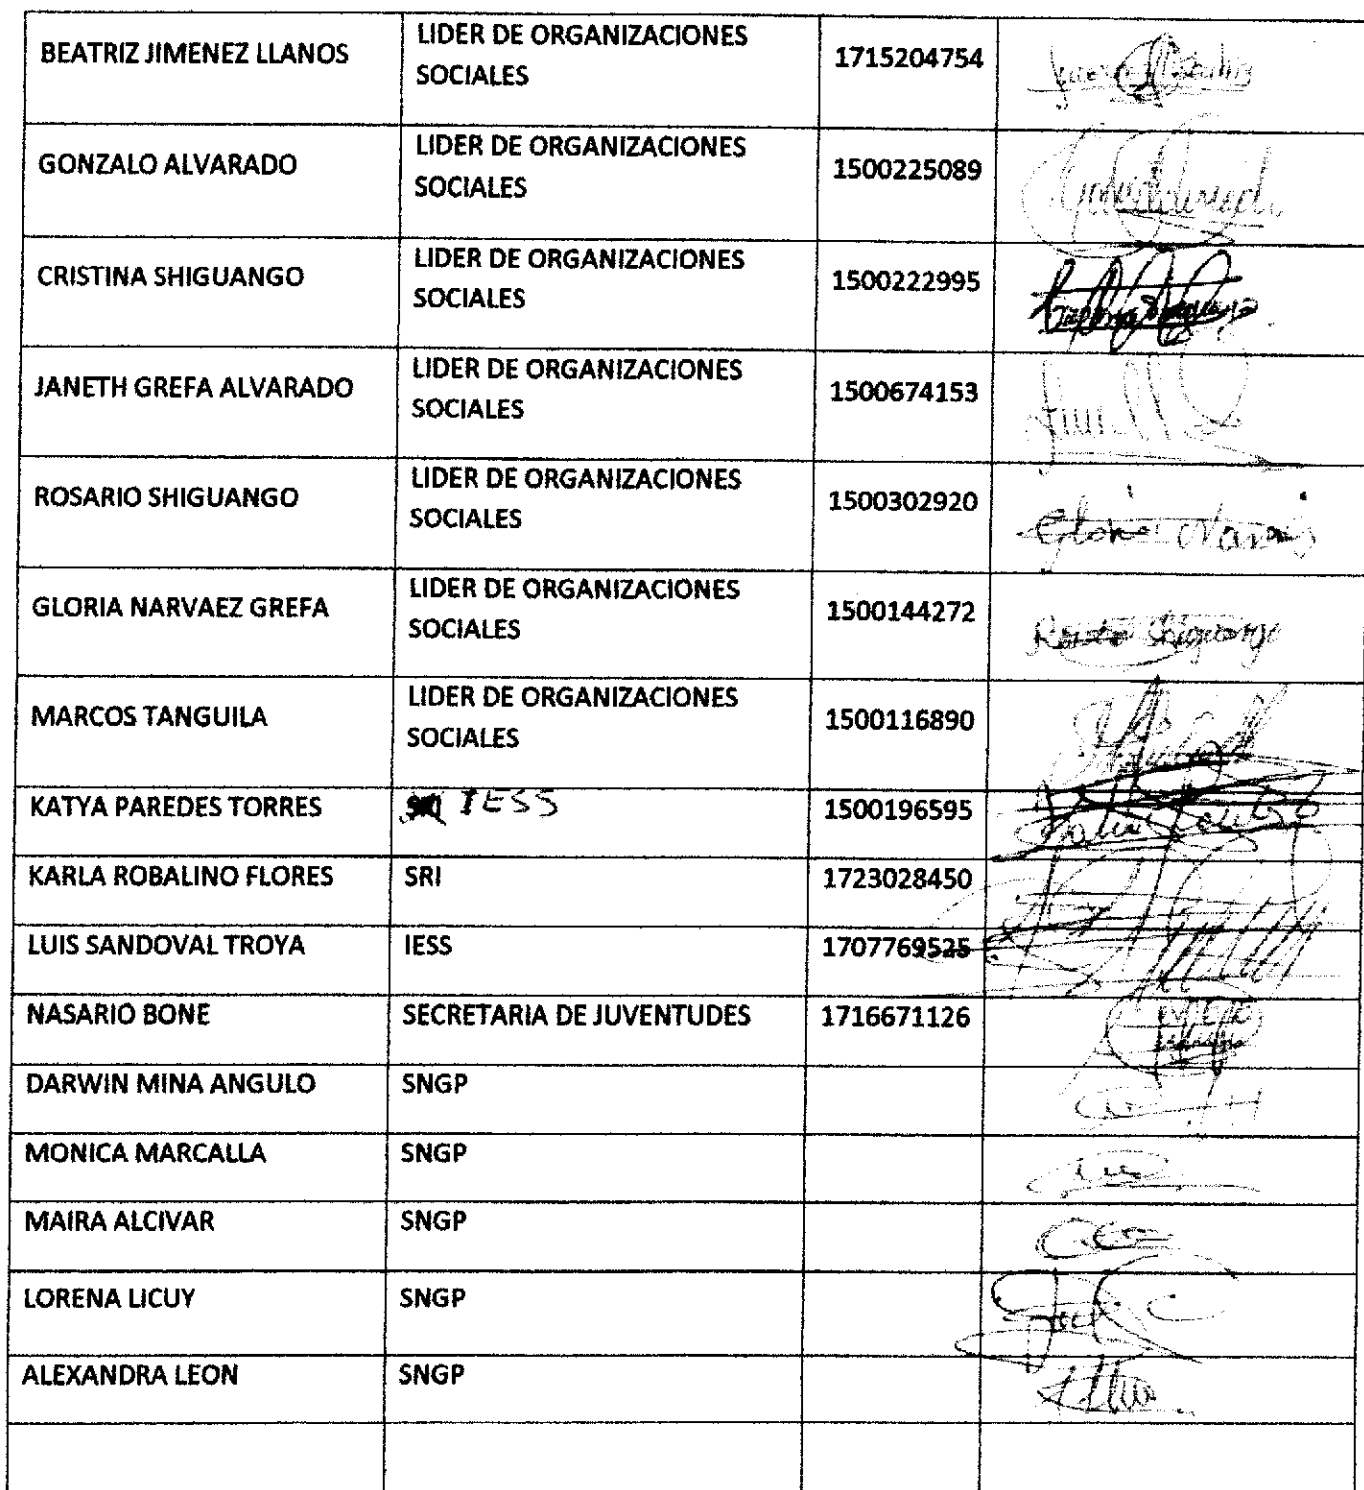 BEATRIZ JIMENEZ LLANOS
LIDER DE ORGANIZACIONES
SOCIALES
1715204754
GONZALO ALVARADO
LIDER DE ORGANIZACIONES
SOCIALES
1500225089
CRISTINA SHIGUANGO
LIDER DE ORGANIZACIONES
SOCIALES
1500222995
JANETH GREFA ALVARADO
LIDER DE ORGANIZACIONES
SOCIALES
1500674153
ROSARIO SHIGUANGO
LIDER DE ORGANIZACIONES
SOCIALES
1500302920
Gloria
GLORIA NARVAEZ GREFA
LIDER DE ORGANIZACIONES
SOCIALES
1500144272
Shiguango
MARCOS TANGUILA
LIDER DE ORGANIZACIONES
SOCIALES
1500116890
KATYA PAREDES TORRES
IESS
1500196595
KARLA ROBALINO FLORES
SRI
1723028450
LUIS SANDOVAL TROYA
IESS
1707769525
NASARIO BONE
SECRETARIA DE JUVENTUDES
1716671126
DARWIN MINA ANGULO
SNGP
MONICA MARCALLA
SNGP
MAIRA ALCIVAR
SNGP
LORENA LICUY
SNGP
ALEXANDRA LEON
SNGP